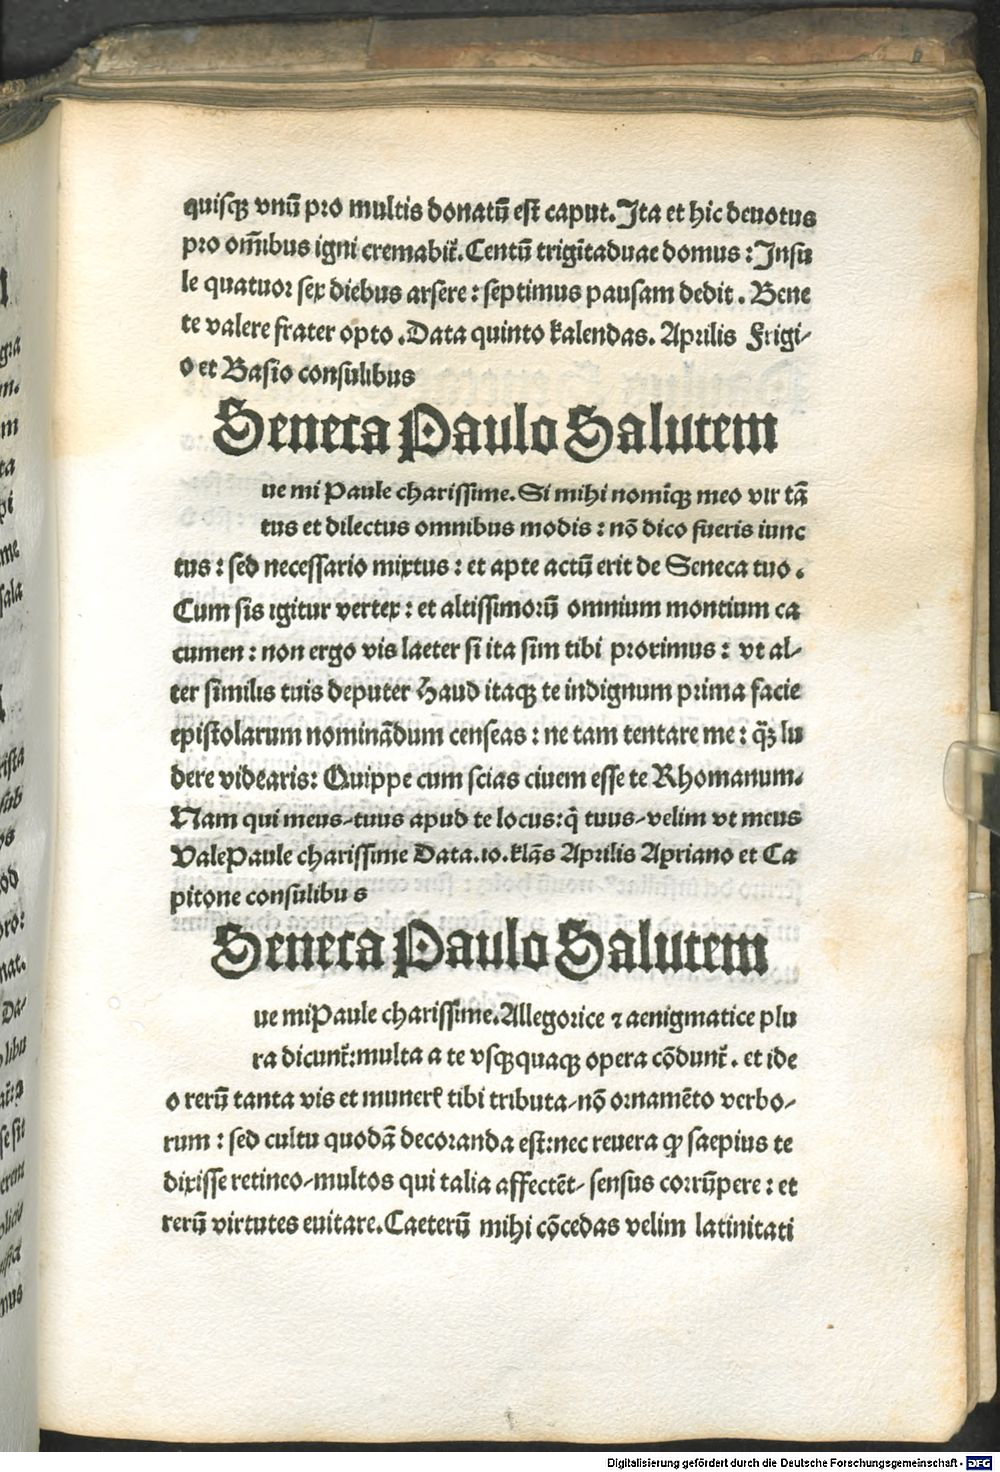 quisqꝫ vnū pro multis donatū est caput. Ita et hic deuotus
pro om̄ibus igni cremabit̄. Centū trigītaduae domus : Insu
le quatuor sex diebus arsere : septimus pausam dedit . Bene
te valere frater opto . Data quinto kalendas. Aprilis Frigi-
o et Basio consulibus
Seneca Paulo Salutem
ue mi Paule charissime. Si mihi nomīqꝫ meo vir tā
tus et dilectus omnibus modis : nō dico fueris iunc
tus : sed necessario mixtus : et apte actū erit de Seneca tuo .
Cum sis igitur vertex : et altissimorū omnium montium ca
cumen : non ergo vis laeter si ita sim tibi proximus : vt al-
ter similis tuis deputer Haud itaqꝫ te indignum prima facie
epistolarum nominādum censeas : ne tam tentare me : q̄ꝫ lu
dere videaris: Quippe cum scias ciuem esse te Rhomanum.
Nam qui meus-tuus apud te locus:q̄ tuus-velim vt meus
ValePaule charissime Data.10.kl̄as Aprilis Apriano et Ca
pitone consulibu s
Seneca Paulo Salutem
ue miPaule charissime.Allegorice ⁊ aenigmatice plu
ra dicunt̄:multa a te vsqꝫquaqꝫ opera cōdunt̄ . et ide
o rerū tanta vis et munerꝭ tibi tributa-nō ornamēto verbo-
rum : sed cultu quodā decoranda est:nec reuera ꝙ saepius te
dixisse retineo-multos qui talia affectēt- sensus corrūpere : et
rerū virtutes euitare.Caeterū mihi cōcedas velim latinitati
Digitalisierung gefördert durch die Deutsche Forschungsgemeinschaft - DFG